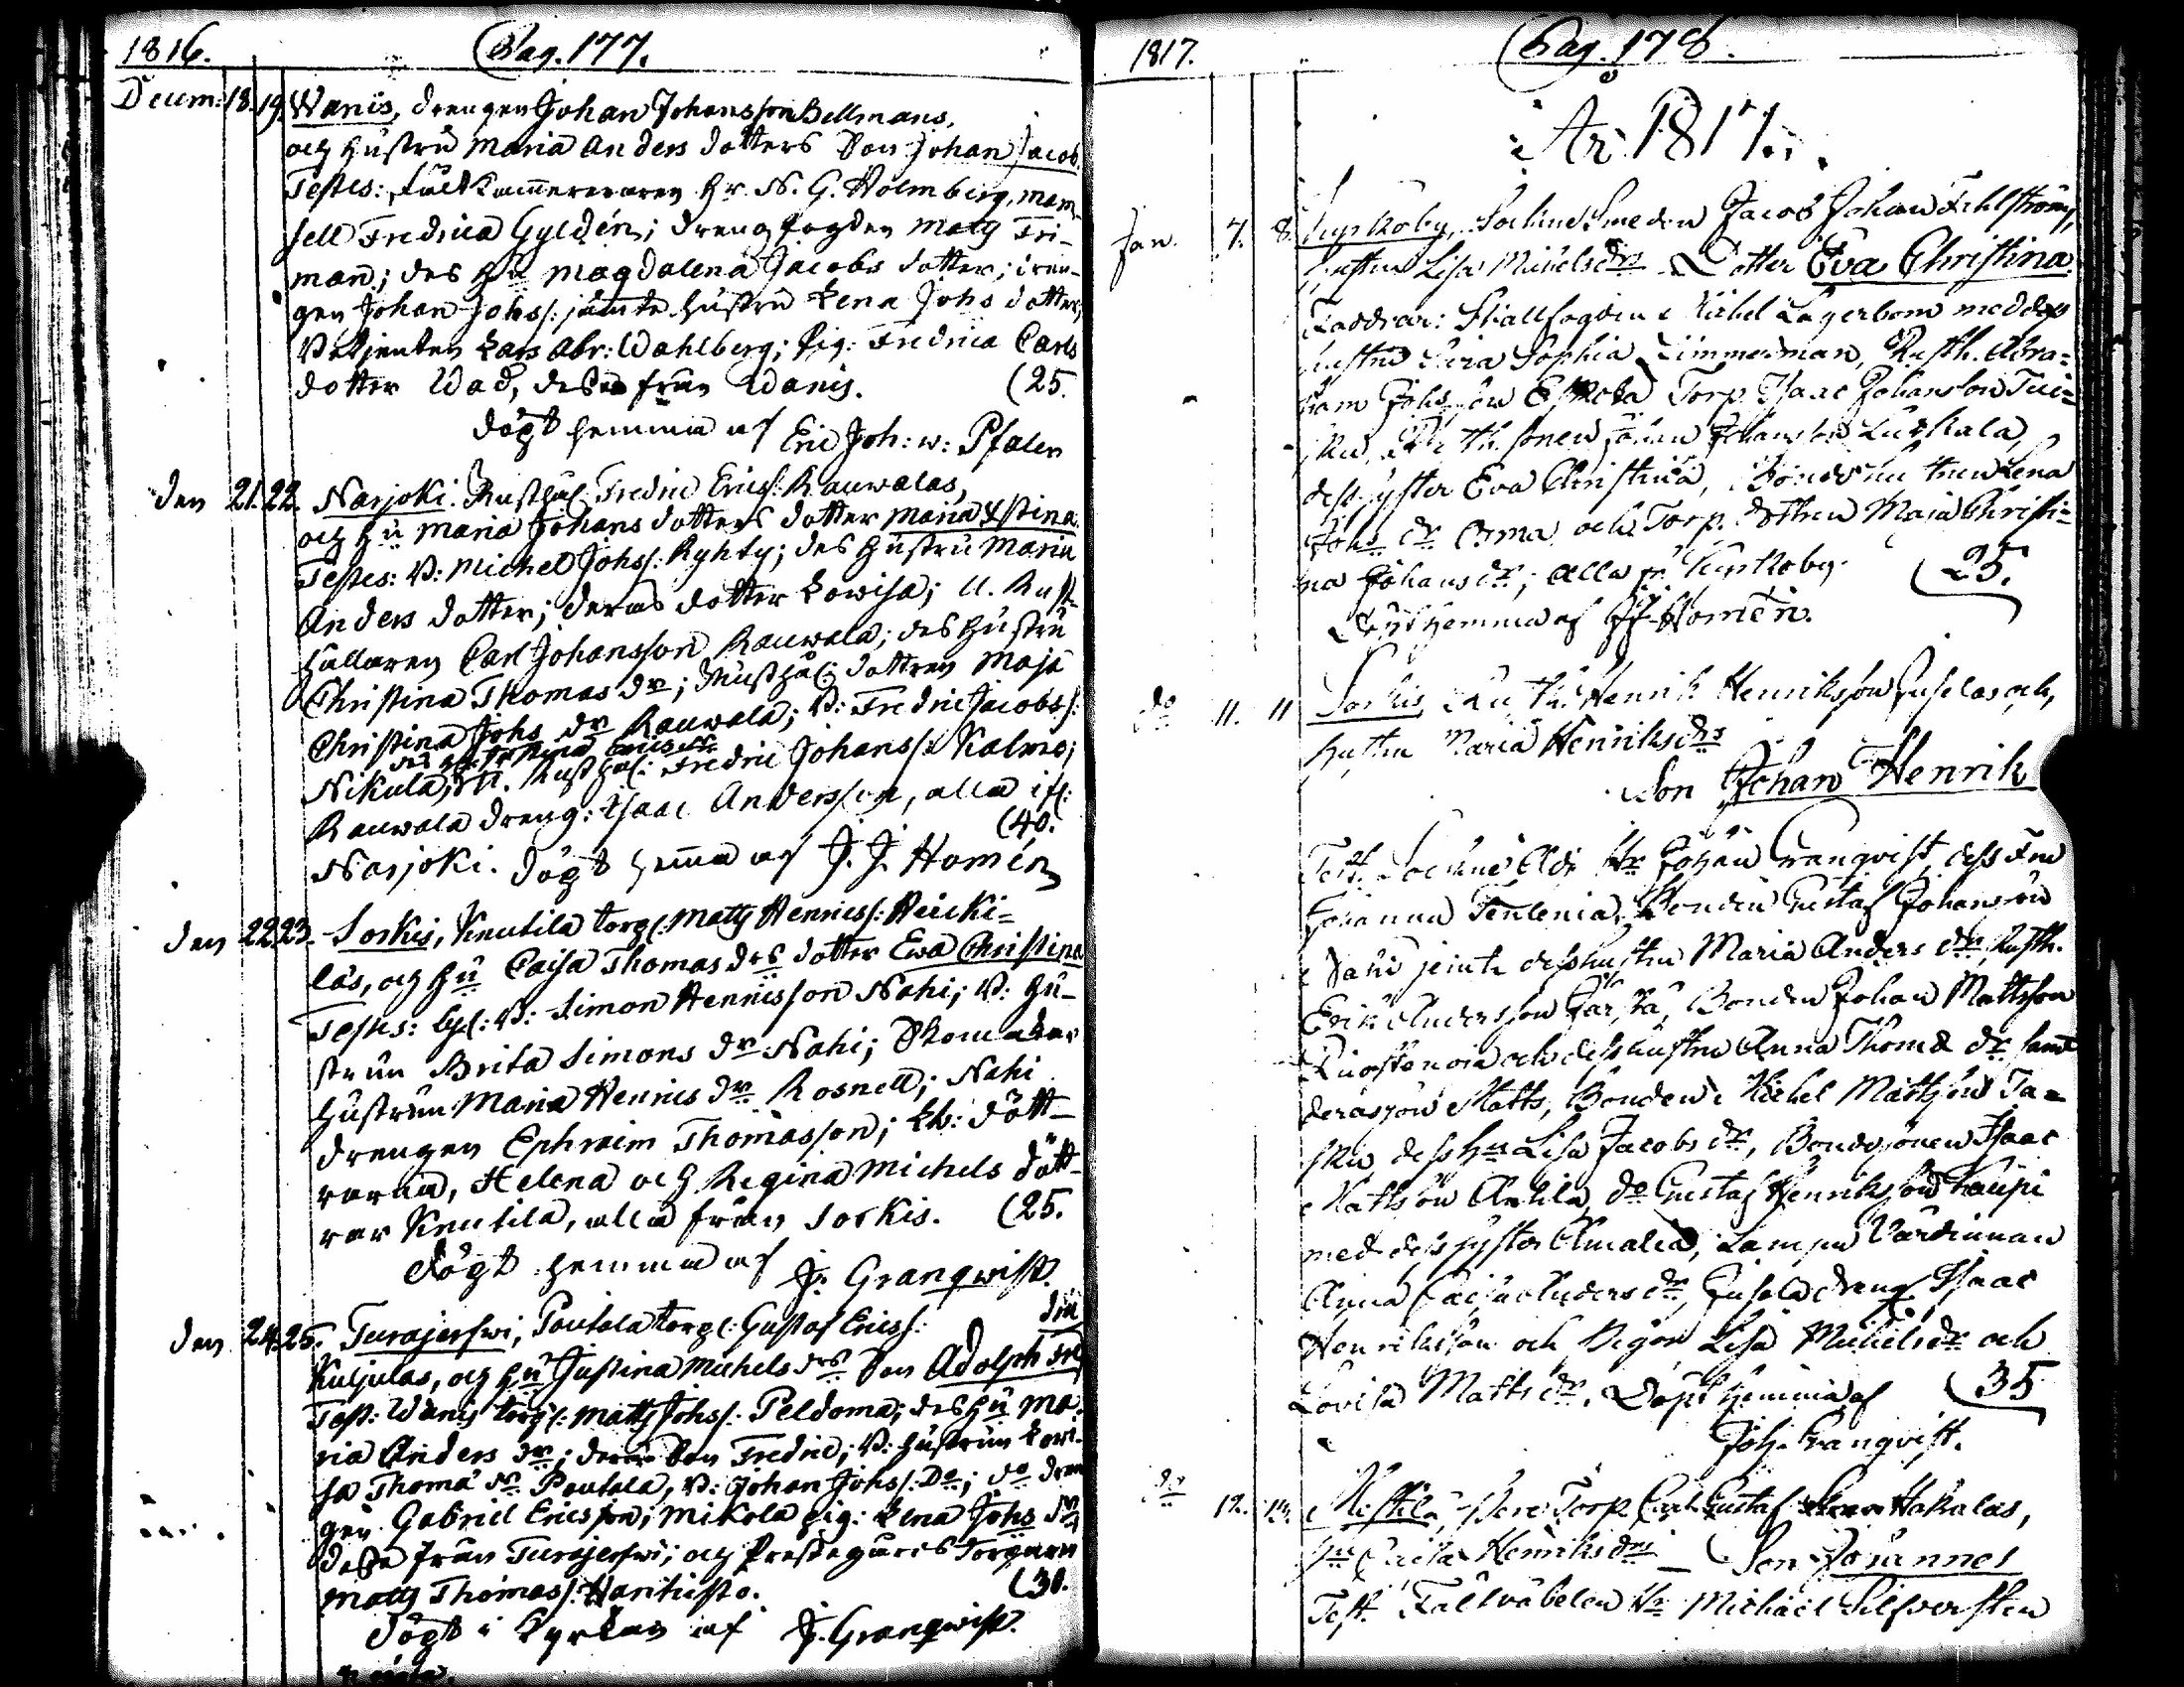 1816. Pag. 177.
Decem: 18. 19. Wanis, drengen Johan Johansson Bellmans,
och hustru Maria Anders dotters Son Johan Jacob.
Testes: Kammereraren Hr. N. G. Holmberg, mam-
sell Fredrica Gyldén; drengfogden Matts Fri-
man; des Hu Magdalena Jacobs dotter; dren-
gen Johan Johs/: jämte hustru Lena Johs dotter,
Betjenten Lars Abr: Wahlberg; Pig: Fredrica Carls
dotter Wad, desse från Wanis. (25.
döpt hemma af Eric Joh: w: Pfaler
den 21. 22. Narjoki. Rusthål: Fredric Erics/: Rauwalas,
och Hu Maria Johans dotters dotter Maria Xstina.
Testes: B: Michel Johs/: Ryhty; des hustru Maria
Anders dotter; deras dotter Lowisa; U. Rust-
hållaren Carl Johansson Rauwala; des hustru
Christina Thomas dr; Rusthål: dottren Maja
Christina Johs dr Rauwala; B: Fredric Jacobs/:
des Hu Erics dr
Nikula; U. Rusthål: Fredric Johans/: Kalmo;
Rauwala dreng: Isaac Andersson, alla if:
Narjoki. döpt hemma af J. J. Homén (40.
den 22. 23. Sorkis, Knutila torp: Matts Henrics/: Heicki-
läs, och Hu Caisa Thomas drs dotter Ewa Christina
Testes: B: Simon Henricsson Nahi; B: hu-
strun Brita Simons dr Nahi; Skomakar
hustrun Maria Henrics dr Rosnell; Nahi
drengen Ephraim Thomasson; dött-
rarna, Helena och Regina Michels dött-
rar Knutila, alla från Sorkis. (25.
döpt hemma af J. Granqwist.
den 24. 25. Turajerfwi, Pautola torp: Gustaf Erics/:
Kuljulas, och Hu Justina Michels drs Son Adolph
Test: Wanis torp: Matts Johs/: Peldoma; des Hu Ma-
ria Anders dr; deras Son Fredric; B: hustrun Lowi-
sa Thomä dr Pautola, B: Johan Johs/: Do; do dren
gen Gabriel Ericsson; Mikola pig: Lena Johs dr
desse från Turajerfwi; och Prestegårds Torparn
Matts Thomas/: Hanhisto. (30.
döpt i Kyrkan af J. Granqwist.
1817. Pag. 178.
År 1817.
Jan. 7. 8. Kurkoby, Sockne Smeden Jacob Johan Fehlström,
hustru Lisa Michelsdrs Dotter Eva Christina
Faddrar: Stallfogden Michel Lagerbom med dess
hustru Sophia Zimmerman, Rusth. Abra-
ham Johsson Torp. Isaac Johansson
Johan Johansson
dess syster Eva Christina, Bondehustrun Lena
Johs dr Orma och Torp. dottren Maja Christi-
na Johansdr; alla fr Kurkoby. (25.
Döpt hemma af J J Homén.
do 11. 11 Sorkis, Rusth. Henrik Henriksson Juselas och
hustru Maria Henriksdrs
Son Johan Henrik
Test. Sockne Adj. Hr Johan Granqvist, dess Fru
Johanna Bonden Gustaf Johansson
jemte dess hustru Maria Anders dr, Rusth.
Erik Andersson Bonden Johan Mattsson
och dess hustru Anna Thomæ dr samt
deras son Matts, Bonden Michel Mattsson Ta-
dess Hu Lisa Jacobs dr, Bondesonen Isaac
Mattsson Anttila, do Gustaf Henriksson Kaupi
med dess syster Amalia, Värdinnan
Anna Caisa Anders dr, Jusela dreng Isaac
Henriksson och Pigan Lisa Michelsdr och
Lovisa Matts dr. Döpt hemma af (35
Joh. Granqvist.
do 12. Torp. Carl Gustaf Hakalas,
Hu Caisa Henriksdrs Son Johannes
Test. Fältväbelen Hr Michaël Silfversten